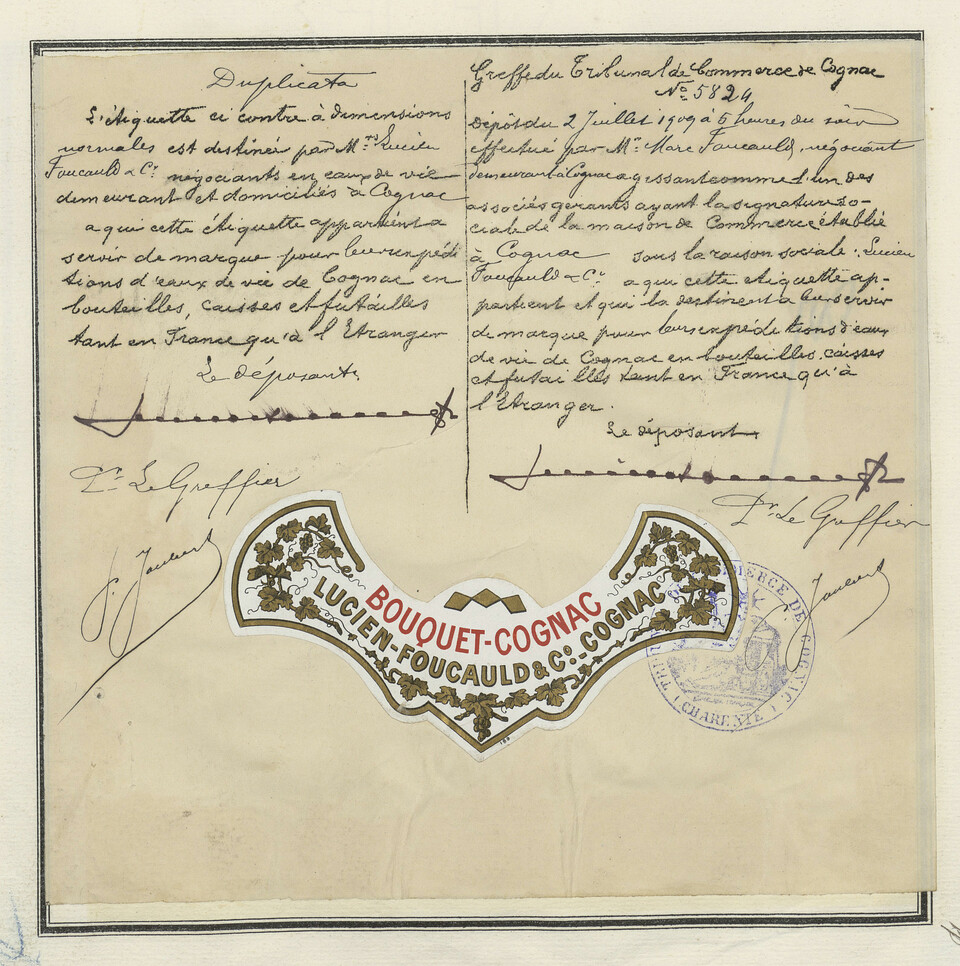 Duplicata
L'étiquette ci contre à dimensions
normales est destinée par Mrs Lucien
Foucauld & Co négociants en eaux de vie
demeurant et domiciliés à Cognac
a qui cette étiquette appartient a
servir de marque pour leurs expédi
tions d'eaux de vie de Cognac en
bouteilles, caisses et futailles
tant en France qu'à l'Etranger
Le déposant
Pr Le Greffier
Greffe du Tribunal de Commerce de Cognac
No 5824
Dépôt du 2 Juillet 1909 à 6 heures du soir
effectué par Mr Marc Foucauld, négociant
demeurant à Cognac agissant comme l'un des
associés gérants ayant la signature so-
ciale de la maison de Commerce établie
à Cognac sous la raison sociale: Lucien
Foucauld & Co a qui cette etiquette ap-
partient et qui la destinent a leur servir
de marque pour leurs expéditions d'eaux
de vie de Cognac en bouteilles, caisses
et futailles tant en France qu'à
l'Etranger.
Le déposant
Pr Le Greffier
BOUQUET-COGNAC
LUCIEN-FOUCAULD & Co.-COGNAC
COMMERCE DE COGNAC
(CHARENTE)